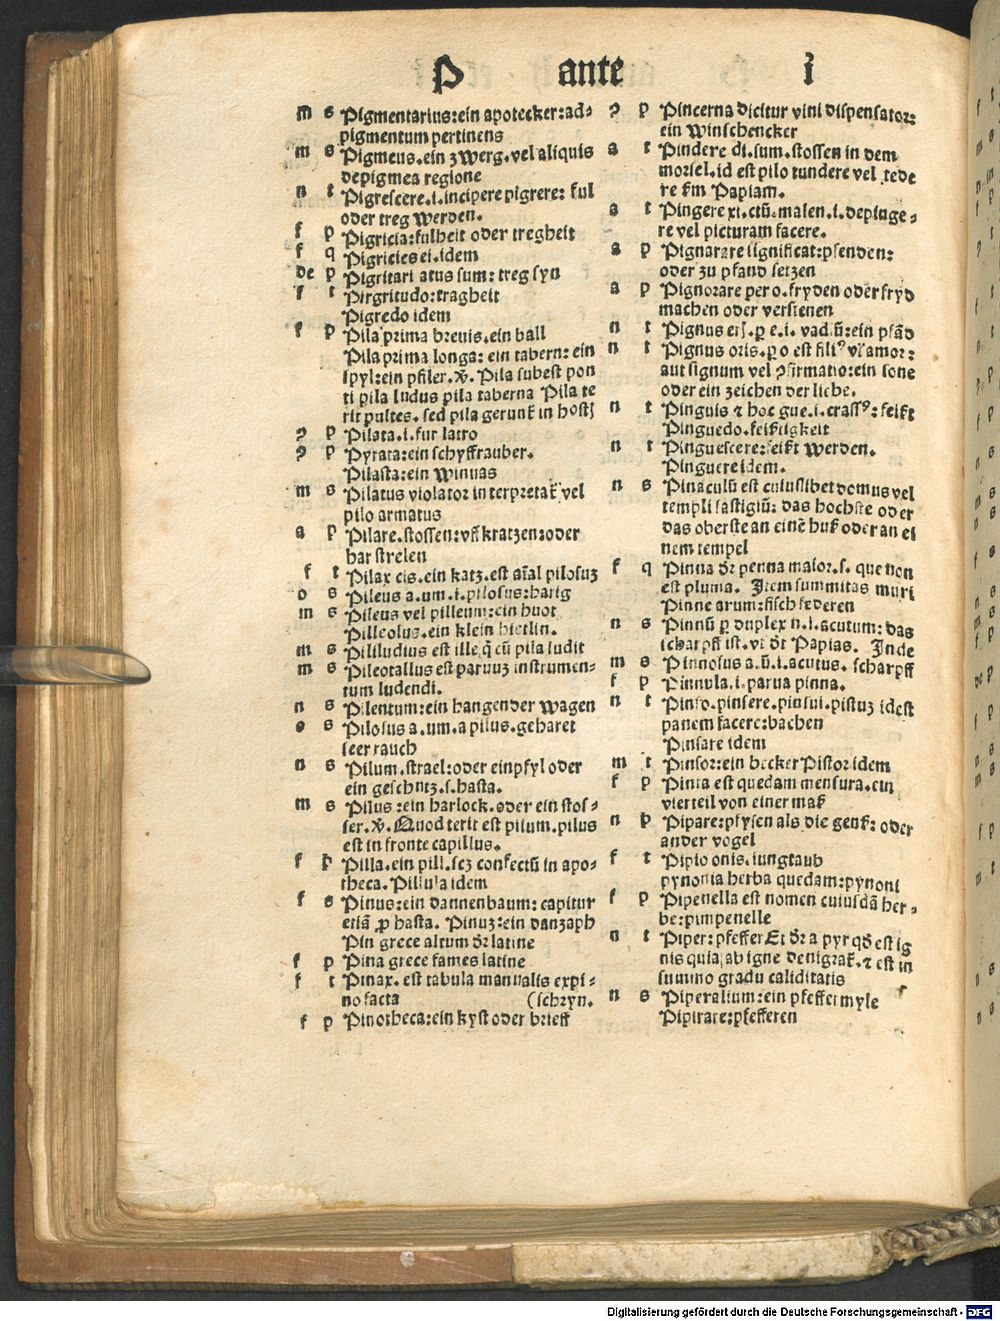 P ante i
m s Pigmentarius:ein apotecker:ad-
pigmentum pertinens
m s Pigmeus.ein zwerg.vel aliquis
depigmea regione
n t Pigrescere.i.incipere pigrere: ful
oder treg werden.
f p Pigricia:fulheit oder tregheit
f q Pigricies ei.idem
de p Pigritari atus sum: treg syn
f t Pirgritudo:tragheit
Pigredo idem
f p Pila prima brevis.ein ball
Pila prima longa: ein tabern: ein
spyl:ein pfiler.v̄. Pila subest pon
ti pila ludus pila taberna Pila te
rit pultes. sed pila gerunt̄ in hostꝭ
ꝯ p Pilata.i.fur latro
ꝯ p Pyrata:ein schyffrauber.
Pilasta:ein winuas
m s Pilatus violator interpretat̄ vel
pilo armatus
a p Pilare.stossen:vñ kratzen:oder
har strelen
f t Pilax cis.ein katz.est aīal pilosuꝫ
o s Pileus a.um.i.pilosus:harig
m s Pileus vel pilleum:ein huot
Pilleolus.ein klein hietlin.
m s Pililudius est ille q̄ cū pila ludit
m s Pileotallus est paruuꝫ instrumen-
tum ludendi.
n s Pilentum:ein hangender wagen
o s Pilosus a.um.a pilus.geharet
seer rauch
n s Pilum.strael:oder einpfyl oder
ein geschutz.s.hasta.
m s Pilus:ein harlock.oder ein stos-
ser.v̄. Quod terit est pilum.pilus
est in fronte capillus.
f p Pilla.ein pill.scꝫ confectū in apo-
theca.Pillula idem
f s Pinus:ein dannenbaum: capitur
etiā ꝓ hasta. Pinuꝫ:ein danzaph
Pin grece altum dr̄ latine
f p Pina grece fames latine
f t Pinax. est tabula manualis expi-
no facta (schryn.
f p Pinotheca:ein kyst oder brieff
ꝯ p Pincerna dicitur vini dispensator:
ein winschencker
a t Pindere di.sum.stossen in dem
morsel.id est pilo tundere vel tede
re s̄m Papiam.
a t Pingere xi.ctū:malen.i.depinge-
re vel picturam facere.
a p Pignarare significat:pfenden:
oder zu pfand setzen
a p Pignorare per o.fryden oder fryd
machen oder versienen
n t Pignus eris.ꝑ e.i. vadiū:ein pfād
n t Pignus oris.ꝑ o est filiꝰ vl̄ amor:
aut signum vel ꝯfirmatio:ein sone
oder ein zeichen der liebe.
n t Pinguis ⁊ hoc gue.i.crassꝰ: feiszt
Pinguedo.feisztigkeit
n t Pinguescere:feiszt werden.
Pinguere idem.
n s Pinaculū est cuiuslibet domus vel
templi fastigiū: das hochste oder
das oberste an einē huß oder an ei
nem tempel
f q Pinna dr̄ penna maior.s. que non
est pluma. Item summitas muri
Pinne arum:fisch federen
n s Pinnū ꝑ duplex n.i.acutum: das
scharpff ist.vt dr̄t Papias. Inde
m s Pinnosus a.ū.i.acutus. scharpff
f p Pinnula.i.parua pinna.
n t Pinso.pinsere.pinsui.pistuꝫ idest
panem facere:bachen
Pinsare idem
m t Pinsor:ein becker Pistor idem
f p Pinta est quedam mensura.ein
vierteil von einer maß
n p Pipare:pfysen als die genß: oder
ander vogel
f t Pipio onis.iungtaub
pynonia herba quedam:pynoni
f p Pipenella est nomen cuiusdā her-
be:pimpenelle
n t Piper:pfeffer Et dr̄ a pyr qd̄ est ig
nis quia ab igne denigrat̄.⁊ est in
summo gradu caliditatis
n s Piperalium:ein pfeffermyle
Pipirare:pfefferen
Digitalisierung gefördert durch die Deutsche Forschungsgemeinschaft - DFG